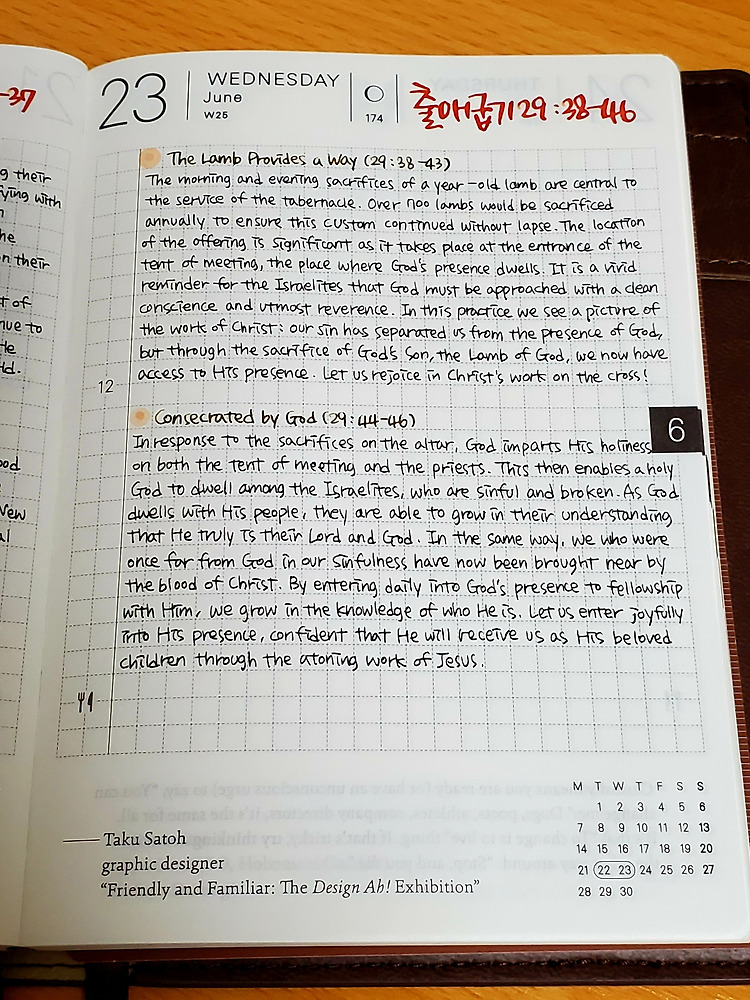 -37
23
WEDNESDAY
June
W25
174
출애굽기 29:38-46
The Lamb Provides a Way (29:38-43)
The morning and evening sacrifices of a year-old lamb are central to
the service of the tabernacle. Over 700 lambs would be sacrificed
annually to ensure this custom continued without lapse. The location
of the offering is significant as it takes place at the entrance of the
tent of meeting, the place where God's presence dwells. It is a vivid
reminder for the Israelites that God must be approached with a clean
conscience and utmost reverence. In this practice we see a picture of
the work of Christ: our sin has separated us from the presence of God,
but through the sacrifice of God's Son, the Lamb of God, we now have
access to His presence. Let us rejoice in Christ's work on the cross!
12
Consecrated by God (29:44-46)
6
In response to the sacrifices on the altar, God imparts His holiness
on both the tent of meeting and the priests. This then enables a holy
God to dwell among the Israelites, who are sinful and broken. As God
dwells with His people, they are able to grow in their understanding
that He truly is their Lord and God. In the same way, we who were
once far from God in our sinfulness have now been brought near by
the blood of Christ. By entering daily into God's presence to fellowship
with Him, we grow in the knowledge of who He is. Let us enter joyfully
into His presence, confident that He will receive us as His beloved
children through the atoning work of Jesus.
g their
ying with
he
n their
t of
nue to
He
ood
New
al
M T W T F S S
1 2 3 4 5 6
7 8 9 10 11 12 13
14 15 16 17 18 19 20
21 22 23 24 25 26 27
28 29 30
Taku Satoh
graphic designer
“Friendly and Familiar: The Design Ah! Exhibition”